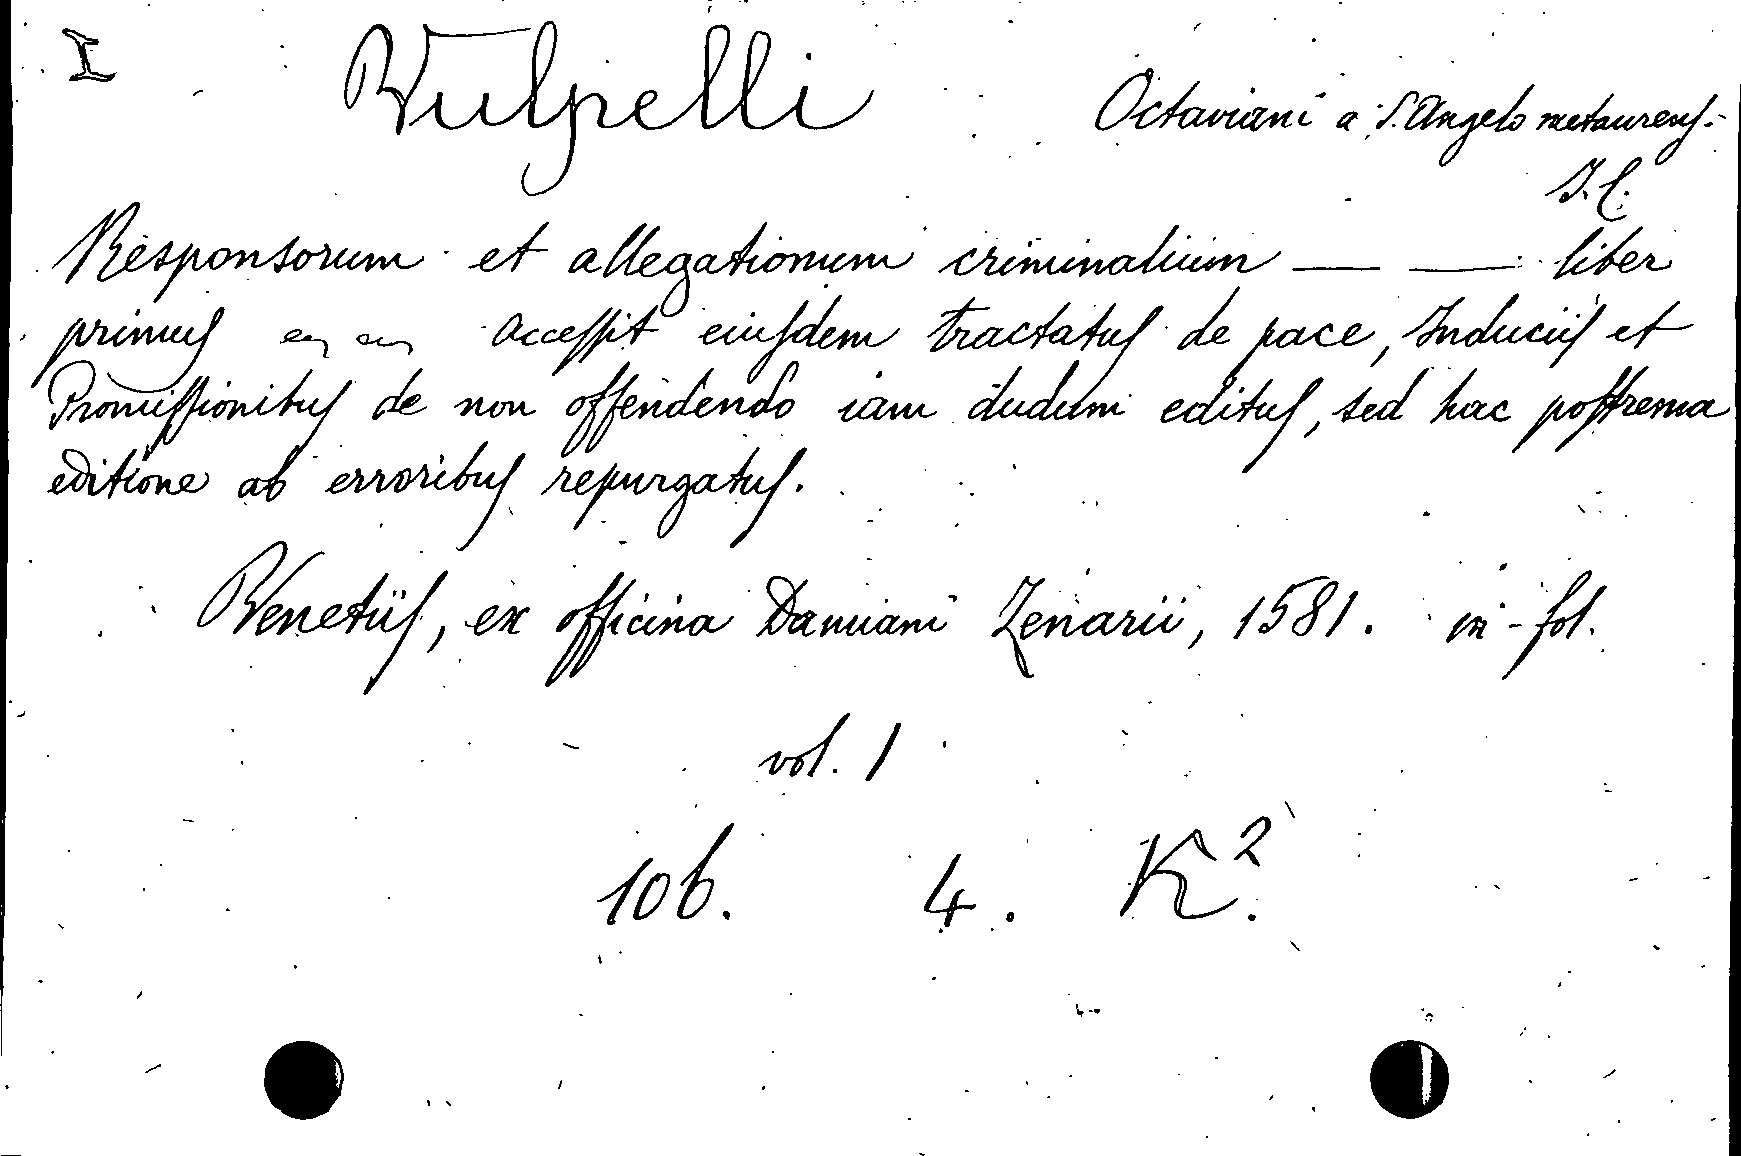 I Vulpelli Octaviani a S. Angelo metaurens.
I. C.
Responsorum et allegationum criminalium — — liber
primus accessit eiusdem tractatus de pace, Induciis et
Promissionibus de non offendendo iam dudum editus, sed hac postrema
editione ab erroribus repurgatus.
Venetiis, ex officina Damiani Zenarii, 1581. in-fol.
vol. 1
106. 4. K².